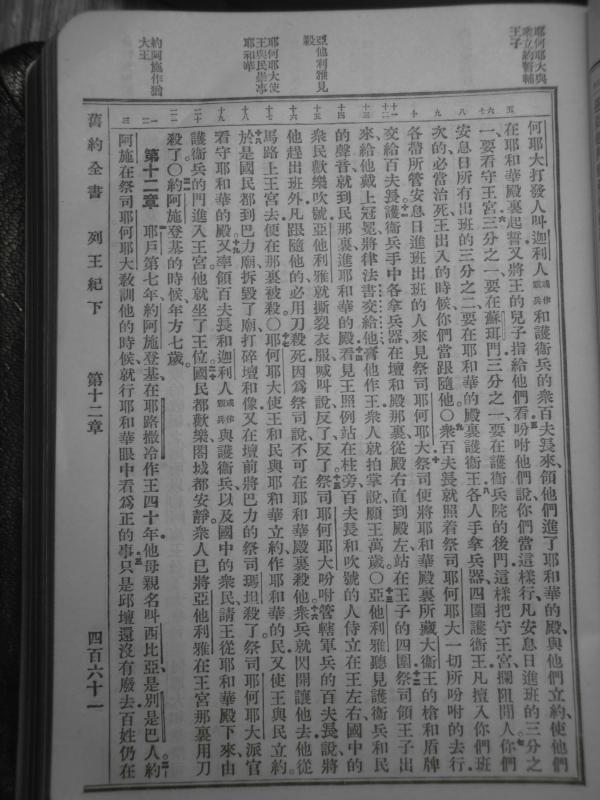 耶何耶大與
衆立約暫輔
王子
亞他利雅見
殺
耶何耶大使
王與民崇事
耶和華
約阿施作猶
大王
何耶大打發人叫迦利人或作親兵和護衞兵的衆百夫長來、領他們進了耶和華的殿、與他們立約、使他們
五 在耶和華殿裏起誓、又將王的兒子指給他們看、吩咐他們說、你們當這樣行、凡安息日進班的三分之
六 一、要看守王宮、三分之一、要在蘇珥門、三分之一、要在護衞兵院的後門、這樣把守王宮、攔阻閒人、你們
八 安息日所有出班的三分之二、要在耶和華的殿裏護衞王、各人手拿兵器、四圍護衞王、凡擅入你們班
九 次的必當治死、王出入的時候、你們當跟隨他○衆百夫長就照着祭司耶何耶大一切所吩咐的去行、
十 各帶所管安息日進班出班的人來見祭司耶何耶大、祭司便將耶和華殿裏所藏大衞王的槍和盾牌
十一 交給百夫長、護衞兵手中各拿兵器、在壇和殿那裏、從殿右直到殿左、站在王子的四圍、祭司領王子出
十二 來、給他戴上冠冕、將律法書交給他、膏他作王、衆人就拍掌說、願王萬歲○亞他利雅聽見護衞兵和民
十四 的聲音、就到民那裏、進耶和華的殿、看見王照例站在柱旁、百夫長和吹號的人侍立在王左右、國中的
十五 衆民歡樂吹號、亞他利雅就撕裂衣服、喊叫說、反了反了、祭司耶何耶大吩咐管轄軍兵的百夫長說、將
十六 他趕出班外、凡跟隨他的必用刀殺死、因爲祭司說不可在耶和華殿裏殺他、衆兵就閃開讓他去、他從
十七 馬路上王宮去、便在那裏被殺○耶何耶大使王和民與耶和華立約、作耶和華的民、又使王與民立約、
十八 於是國民都到巴力廟、拆毀了廟、打碎壇和像、又在壇前將巴力的祭司瑪坦殺了、祭司耶何耶大派官
十九 看守耶和華的殿、又率領百夫長和迦利人或作親兵與護衞兵、以及國中的衆民、請王從耶和華殿下來、由
二十 護衞兵的門進入王宮、他就坐了王位、國民都歡樂、闔城都安靜、衆人已將亞他利雅在王宮那裏用刀
二一 殺了○約阿施登基的時候年方七歲。
一 第十二章 耶戶第七年、約阿施登基、在耶路撒冷作王四十年、他母親名叫西比亞、是別是巴人、約
三 阿施在祭司耶何耶大敎訓他的時候、就行耶和華眼中看爲正的事、只是邱壇還沒有廢去、百姓仍在
舊約全書 列王紀下 第十二章 四百六十一